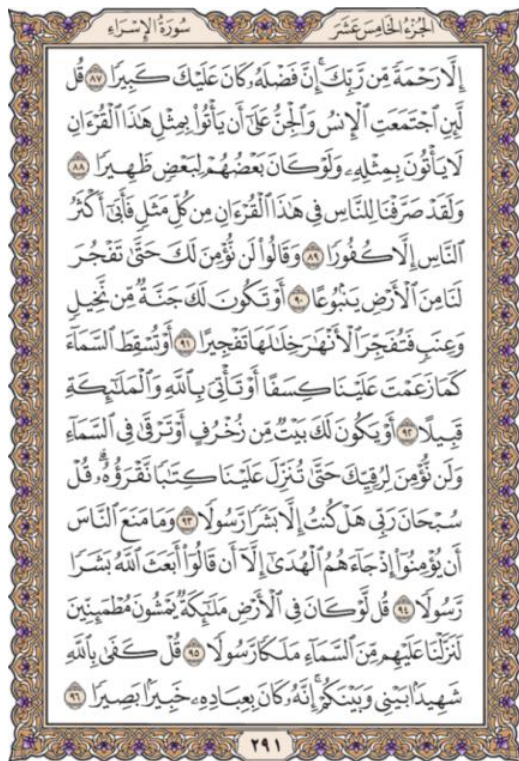 الجُزءُ الخَامِسَ عَشَرَ
سُورَةُ الإِسْرَاءِ
إِلَّا رَحْمَةً مِّن رَّبِّكَۚ إِنَّ فَضْلَهُۥ كَانَ عَلَيْكَ كَبِيرًا ٨٧ قُل
لَّئِنِ ٱجْتَمَعَتِ ٱلْإِنسُ وَٱلْجِنُّ عَلَىٰٓ أَن يَأْتُوا۟ بِمِثْلِ هَٰذَا ٱلْقُرْءَانِ
لَا يَأْتُونَ بِمِثْلِهِۦ وَلَوْ كَانَ بَعْضُهُمْ لِبَعْضٍ ظَهِيرًا ٨٨
وَلَقَدْ صَرَّفْنَا لِلنَّاسِ فِى هَٰذَا ٱلْقُرْءَانِ مِن كُلِّ مَثَلٍ فَأَبَىٰٓ أَكْثَرُ
ٱلنَّاسِ إِلَّا كُفُورًا ٨٩ وَقَالُوا۟ لَن نُّؤْمِنَ لَكَ حَتَّىٰ تَفْجُرَ
لَنَا مِنَ ٱلْأَرْضِ يَنۢبُوعًا ٩٠ أَوْ تَكُونَ لَكَ جَنَّةٌ مِّن نَّخِيلٍ
وَعِنَبٍ فَتُفَجِّرَ ٱلْأَنْهَٰرَ خِلَٰلَهَا تَفْجِيرًا ٩١ أَوْ تُسْقِطَ ٱلسَّمَآءَ
كَمَا زَعَمْتَ عَلَيْنَا كِسَفًا أَوْ تَأْتِىَ بِٱللَّهِ وَٱلْمَلَٰٓئِكَةِ
قَبِيلًا ٩٢ أَوْ يَكُونَ لَكَ بَيْتٌ مِّن زُخْرُفٍ أَوْ تَرْقَىٰ فِى ٱلسَّمَآءِ
وَلَن نُّؤْمِنَ لِرُقِيِّكَ حَتَّىٰ تُنَزِّلَ عَلَيْنَا كِتَٰبًا نَّقْرَؤُهُۥۗ قُلْ
سُبْحَانَ رَبِّى هَلْ كُنتُ إِلَّا بَشَرًا رَّسُولًا ٩٣ وَمَا مَنَعَ ٱلنَّاسَ
أَن يُؤْمِنُوٓا۟ إِذْ جَآءَهُمُ ٱلْهُدَىٰٓ إِلَّآ أَن قَالُوٓا۟ أَبَعَثَ ٱللَّهُ بَشَرًا
رَّسُولًا ٩٤ قُل لَّوْ كَانَ فِى ٱلْأَرْضِ مَلَٰٓئِكَةٌ يَمْشُونَ مُطْمَئِنِّينَ
لَنَزَّلْنَا عَلَيْهِم مِّنَ ٱلسَّمَآءِ مَلَكًا رَّسُولًا ٩٥ قُلْ كَفَىٰ بِٱللَّهِ
شَهِيدًۢا بَيْنِى وَبَيْنَكُمْۚ إِنَّهُۥ كَانَ بِعِبَادِهِۦ خَبِيرًۢا بَصِيرًا ٩٦
٢٩١